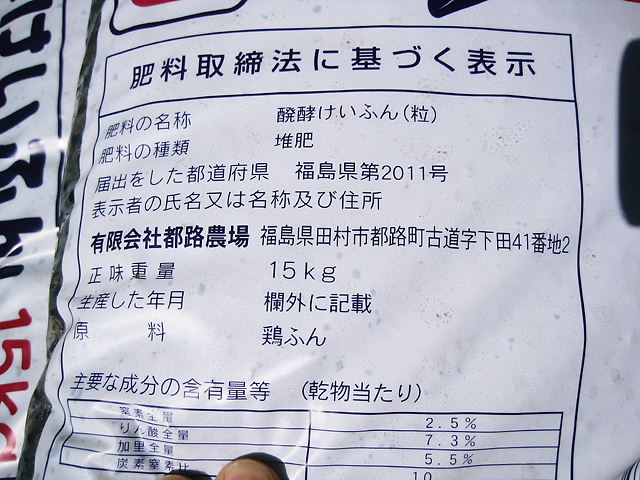 肥料取締法に基づく表示
肥料の名称 醗酵けいふん(粒)
肥料の種類 堆肥
届出をした都道府県 福島県第2011号
表示者の氏名又は名称及び住所
有限会社都路農場 福島県田村市都路町古道字下田41番地2
正味重量 15kg
生産した年月 欄外に記載
原料 鶏ふん
主要な成分の含有量等 (乾物当たり)
窒素全量 2.5%
りん酸全量 7.3%
加里全量 5.5%
炭素窒素比 10
けいふん 15kg